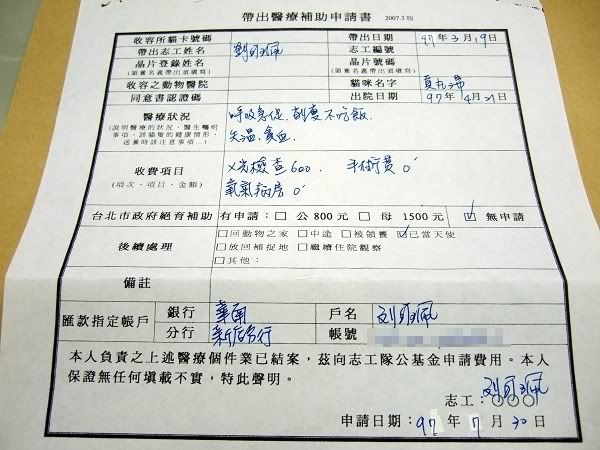 帶出醫療補助申請書 2007.3版
收容所貓卡號碼 帶出日期 97年3月19日
帶出志工姓名 志工編號
晶片登錄姓名 (領養名義帶出須填寫) 晶片號碼 (領養名義帶出須填寫)
收容之動物醫院 貓咪名字
同意書認證碼 出院日期 97年4月21日
醫療狀況 呼吸急促、不吃飯、
(說明醫療的狀況,醫生囑咐事項、該貓隻的健康情形、送養時該注意事項...) 失溫、貧血
收費項目 X光檢查600、手術費0
(項次、項目、金額) 氧氣病房0
台北市政府絕育補助 有申請:□公800元 □母1500元 ☑無申請
後續處理 □回動物之家 □中途 □被領養 ☑已當天使
□放回捕捉地 □繼續住院觀察
□其他:
備註
匯款指定帳戶 銀行 華南 戶名
分行 新店分行 帳號
本人負責之上述醫療個件業已結案,茲向志工隊公基金申請費用。本人
保證無任何填載不實,特此聲明。
志工:○○○
申請日期:97年7月30日